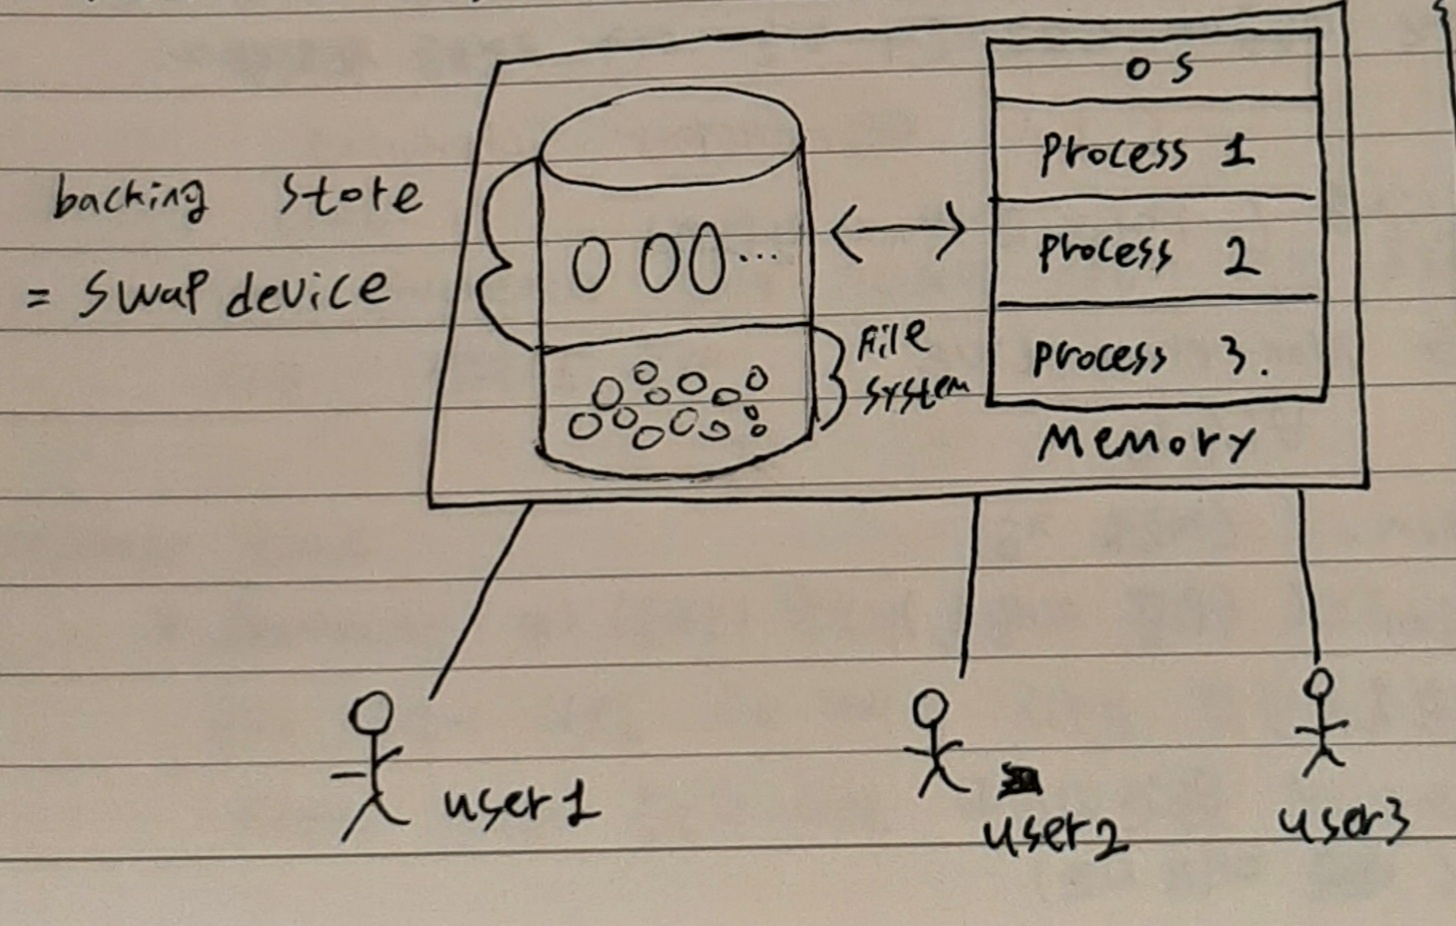 backing store
= swap device
000...
File
system
OS
Process 1
Process 2
Process 3.
Memory
user1
user2
user3